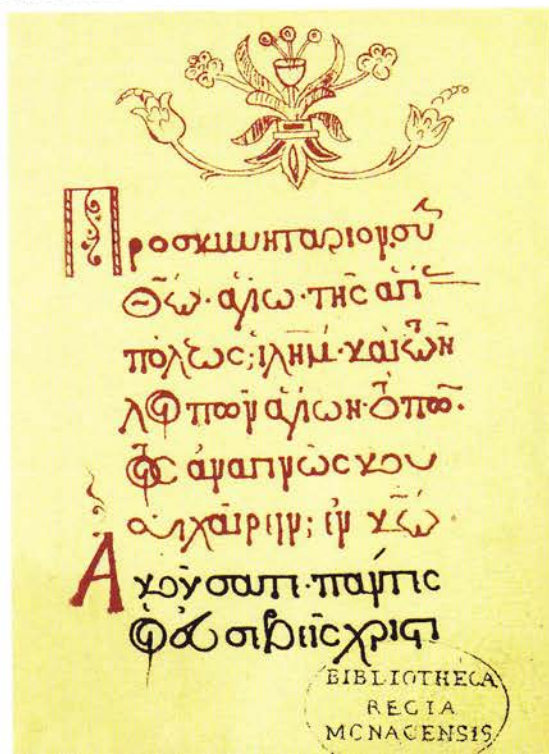 Προσκυνητάριον, σὺν
Θῶ· ἁγίω· τῆς ἁγί
πόλεως; ἱλημ· καὶ τῶν
λοιπῶν ἁγίων· τόπω·
τοῖς ἀναγινώσκου
σι χαίρειν; ἐν κῶ·
Ἀκούσατε· πάντες
οἱ εὐσεβεῖς χριστι
BIBLIOTHECA
REGIA
MONACENSIS